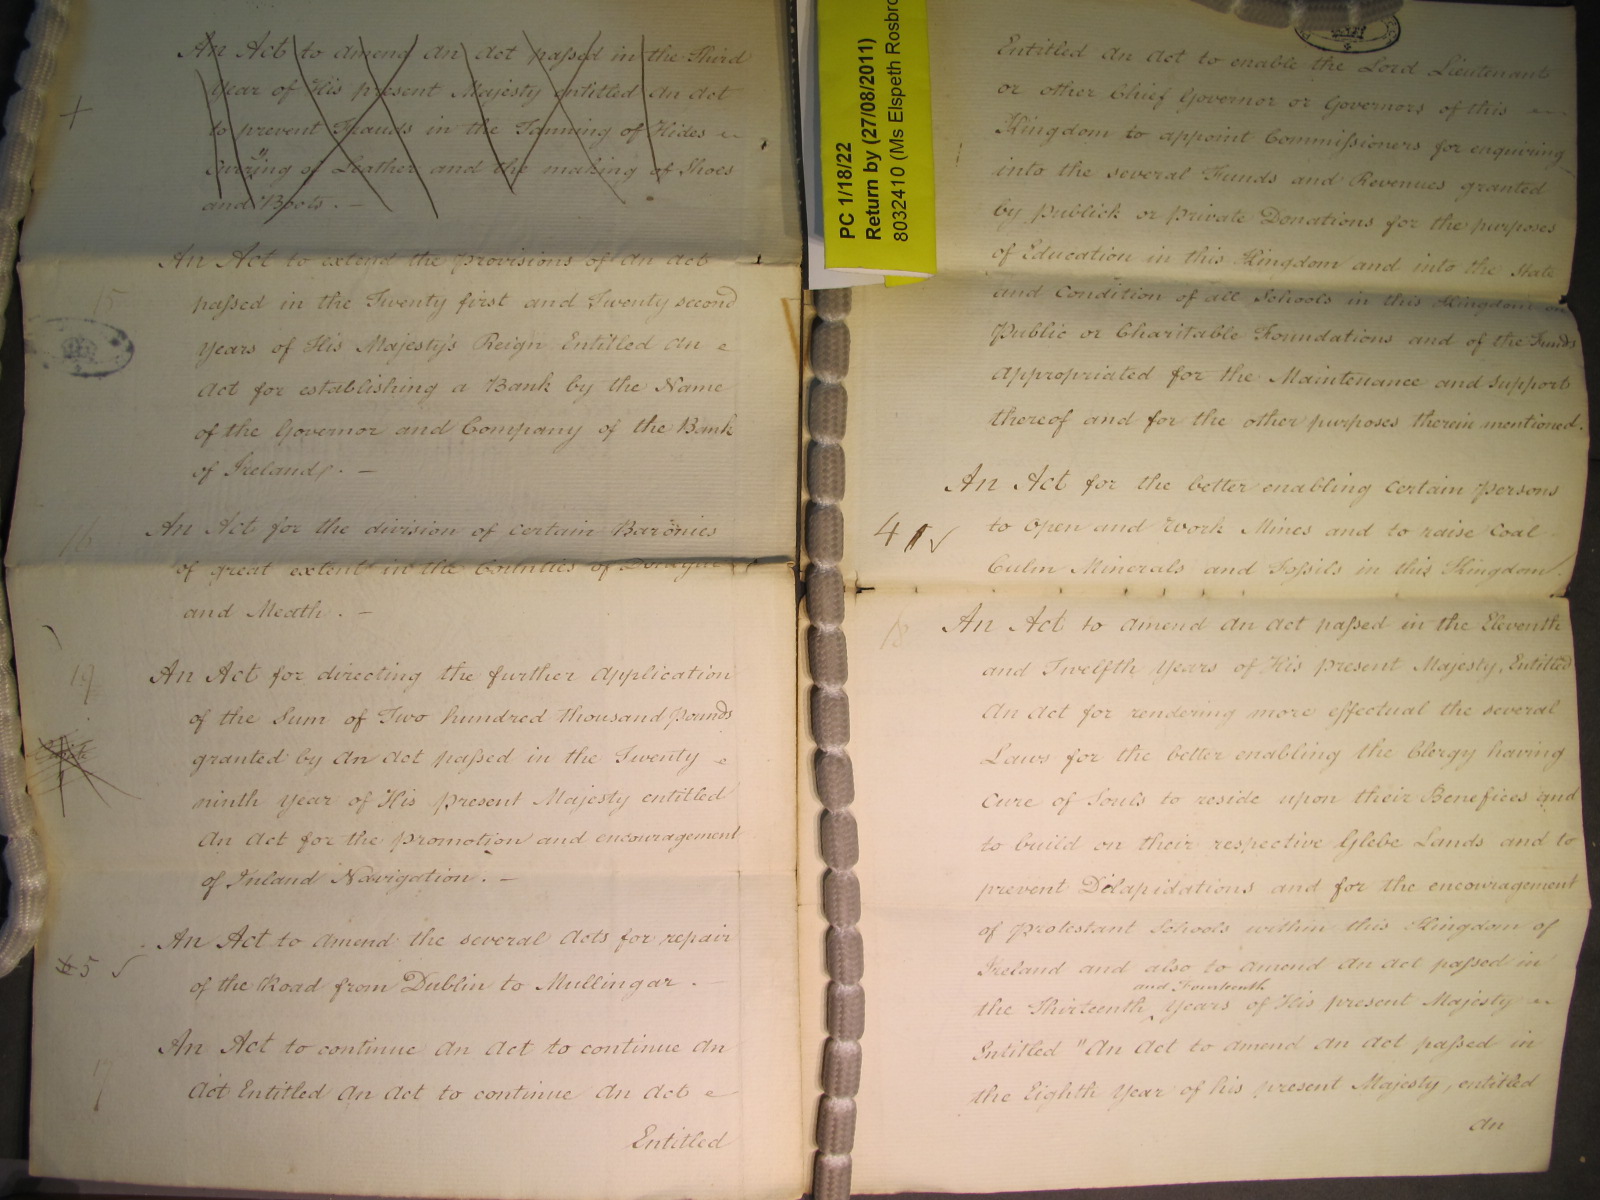 An Act to amend an act passed in the Third
Year of His present Majesty entitled an act
to prevent Frauds in the Tanning of Hides
+
Currying of Leather and the making of Shoes
and Boots. —
An Act to extend the provisions of an act
15
passed in the Twenty first and Twenty second
Years of His Majesty's Reign Entitled An
Act for establishing a Bank by the Name
of the Governor and Company of the Bank
of Ireland. —
16
An Act for the division of certain Baronies
of great extent in the Counties of
and Meath. —
19
An Act for directing the further Application
of the Sum of Two hundred thousand pounds
granted by an act passed in the Twenty
ninth year of His present Majesty entitled
An Act for the Promotion and encouragement
of Inland Navigation. —
An Act to amend the several acts for repair
5 ✓
of the Road from Dublin to Mullingar. —
An Act to continue An Act to continue An
17
Act Entitled An Act to continue An Act
Entitled
PC 1/18/22
Return by (27/08/2011)
8032410 (Ms Elspeth Rosbro
Entitled An Act to enable the Lord Lieutenant
or other Chief Governor or Governors of this
Kingdom to appoint Commissioners for enquiring
into the several Funds and Revenues granted
by publick or private Donations for the purposes
of Education in this Kingdom and into the State
and Condition of all Schools in this Kingdom on
Public or Charitable Foundations and of the Funds
appropriated for the Maintenance and support
thereof and for the other purposes therein mentioned.
An Act for the better enabling certain persons
4 ✓
to open and Work Mines and to raise Coal
Culm Minerals and Fossils in this Kingdom.
18
An Act to amend an act passed in the Eleventh
and Twelfth Years of His present Majesty, Entitled
An Act for rendering more effectual the several
Laws for the better enabling the Clergy having
Cure of Souls to reside upon their Benefices and
to build on their respective Glebe Lands and to
prevent Dilapidations and for the encouragement
of Protestant Schools within this Kingdom of
Ireland and also to amend an act passed in
and Fourteenth
the Thirteenth Years of His present Majesty
Entitled "An Act to amend an act passed in
the Eighth Year of his present Majesty, entitled
An